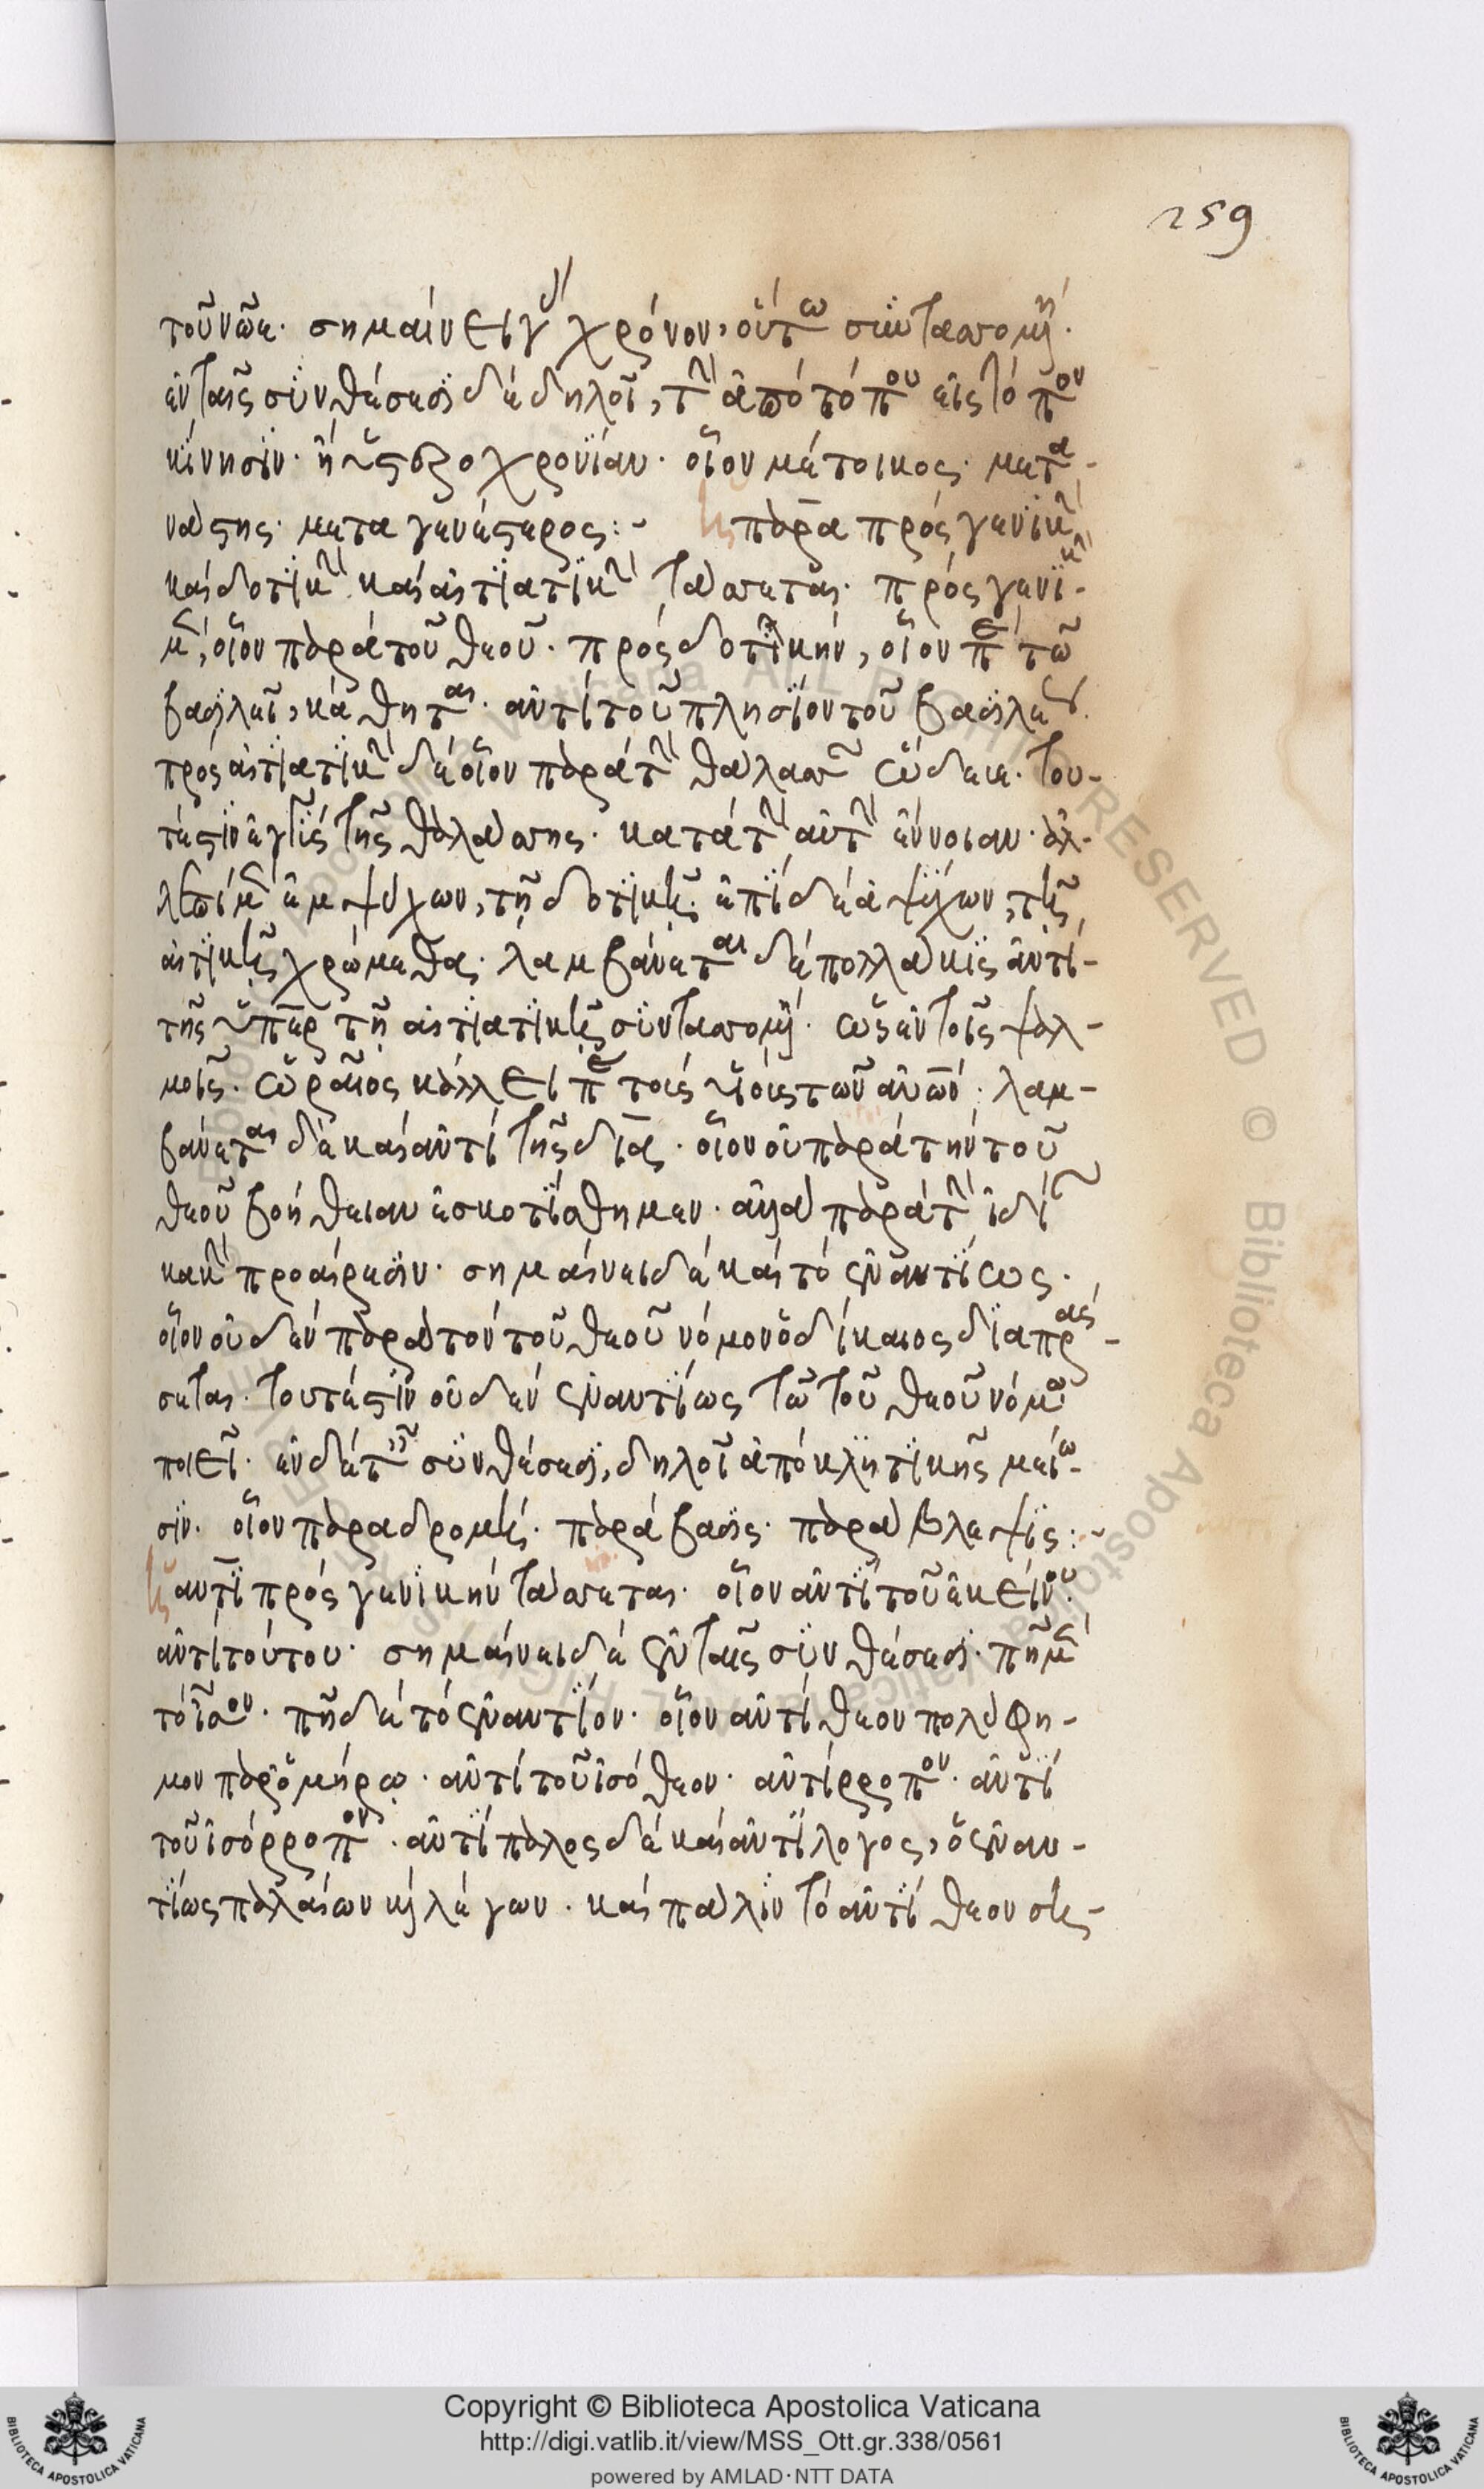 259
τοῦ νῶε· σημαίνει γ(ὰρ) χρόνον, οὕτω συντασσομ(έν)η·
ἐν ταῖς συνθέσεσι δὲ δηλοῖ, τὴν ἀπὸ τόπου εἰς τόπον
κίνησιν· ἢ ὑστεροχρονίαν· οἷον μέτοικος· μετα-
νάστης· μεταγενέστερος:-
ἡ παρὰ πρὸς γενικὴν
καὶ δοτικὴν καὶ αἰτιατικὴν τάσσεται· πρὸς γενικὴν
μὲν, οἷον παρὰ τοῦ θεοῦ· πρὸς δοτικήν, οἷον παρὰ τῶ
βασιλεῖ, κάθηται· ἀντὶ τοῦ πλησίον τοῦ βασιλέως·
πρὸς αἰτιατικὴν δὲ οἷον παρὰ τὴν θάλασσαν ὥδευε· του-
τέστιν ἐγγὺς τῆς θαλάσσης· κατὰ τὴν αὐτὴν ἔννοιαν· ἀλ-
λ' ἐπὶ μὲν ἐμψύχων, τῇ δοτικῇ· ἐπὶ δὲ ἀψύχων, τῇ
αἰτι(ατι)κῇ χρώμεθα· λαμβάνεται δὲ πολλάκις ἀντὶ
τῆς ὑπὲρ τῇ αἰτιατικῇ συντασσομ(έν)η· ὡς ἐν τοῖς ψαλ-
μοῖς· ὡραῖος κάλλει παρὰ τοὺς υἱοὺς τῶν ἀνων· λαμ-
βάνεται δὲ καὶ ἀντὶ τῆς διὰ· οἷον οὐ παρὰ τὴν τοῦ
θεοῦ βοήθειαν ἐσκοτίσθημεν· ἀλλὰ παρὰ τὴν ἰδίαν
κακὴν προαίρεσιν· σημαίνει δὲ καὶ τὸ ἐναντίως·
οἷον οὐδὲν παρὰ τὸν τοῦ θεοῦ νόμον ὁ δίκαιος διαπρά-
σεται· τουτέστιν οὐδὲν ἐναντίως τῶ τοῦ θεοῦ νόμω
ποιεῖ· ἐν δὲ τῇ συνθέσει, δηλοῖ ἀποκλητικῆς μείω-
σιν· οἷον παραδρομὴ· παράβασις· παράβλεψις:-
ἡ ἀντὶ πρὸς γενικὴν τάσσεται· οἷον ἀντὶ τοῦ ἐκείνου·
ἀντὶ τούτου· σημαίνει δὲ ἐν ταῖς συνθέσεσι· πῆ μὲν
τὸ ἴσον· πῆ δὲ τὸ ἐναντίον· οἷον ἀντίθεον πολύφη-
μον παρ' ὁμήρῳ· ἀντὶ τοῦ ἰσόθεον· ἀντίρροπον· ἀντὶ
τοῦ ἰσόρροπον· ἀντίπαλος δὲ καὶ ἀντίλογος, ὁ ἐναν-
τίως παλαίων καὶ λέγων· καὶ πάλιν τὸ ἀντίθεον ση-
Copyright © Biblioteca Apostolica Vaticana
http://digi.vatlib.it/view/MSS_Ott.gr.338/0561
powered by AMLAD·NTT DATA